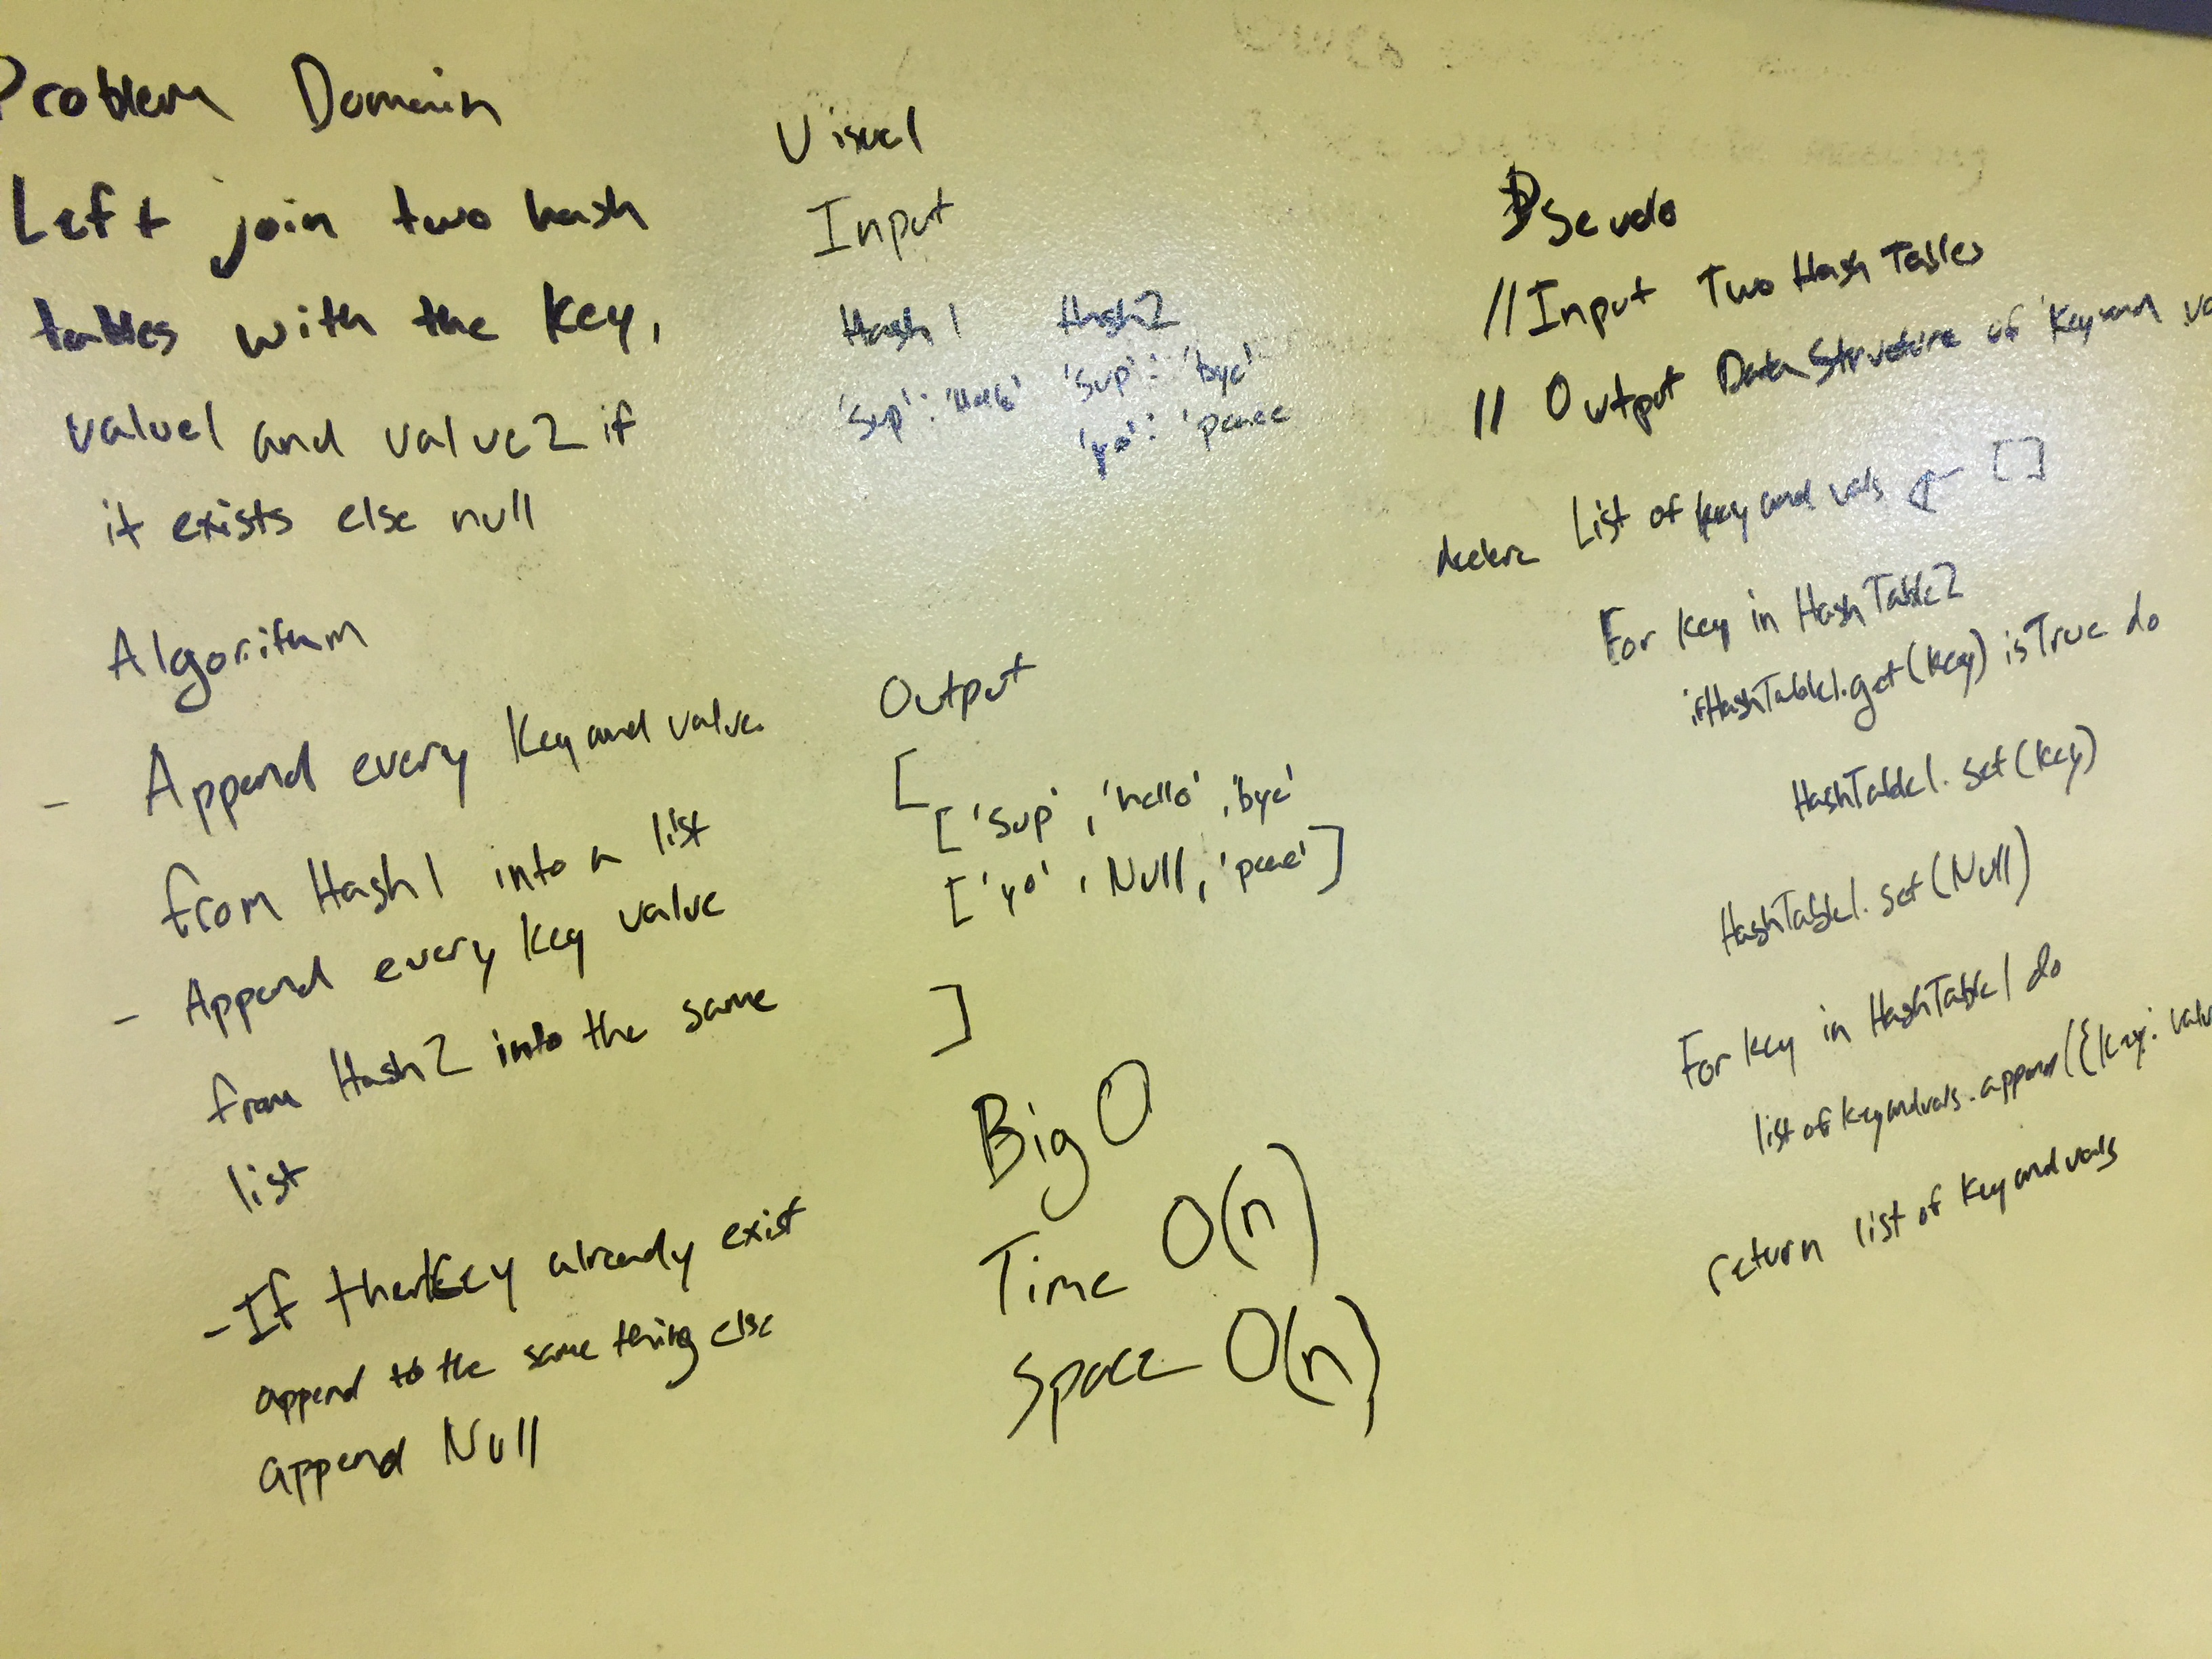 Problem Domain
Left join two hash
tables with the key,
value1 and value2 if
it exists else null
Algorithm
- Append every key and value
from Hash1 into a list
- Append every key value
from Hash2 into the same
list
- If the key already exist
append to the same thing else
append Null
Visual
Input
Hash1 Hash2
'Sup': 'Hello' 'Sup': 'bye'
'yo': 'peace
Output
[
['Sup', 'hello', 'bye'
['yo', Null, 'peace']
]
Big O
Time O(n)
Space O(n)
Pseudo
// Input Two Hash Tables
// Output Data Structure of key and va
declare List of key and vals ← []
For key in HashTable2
if HashTable1.get(key) is True do
HashTable1.set(key)
HashTable1.set(Null)
For key in HashTable1 do
list of key and vals.append({key: valu
return list of key and vals